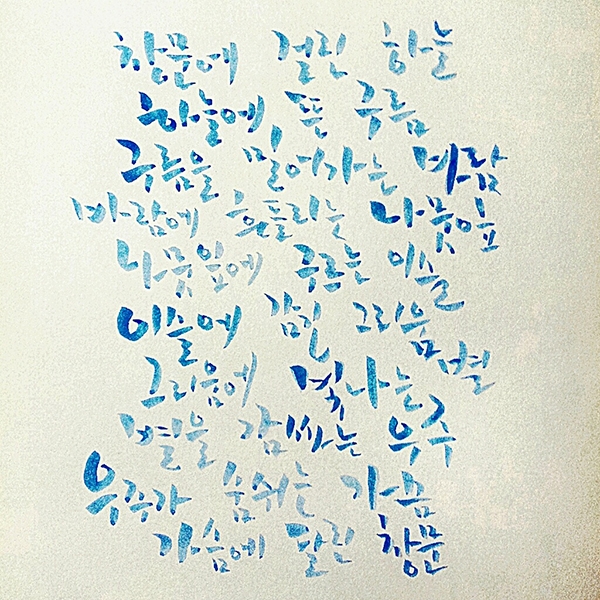 창문에 걸린 하늘
하늘에 뜬 구름
구름을 밀어가는 바람
바람에 흔들리는 나뭇잎
나뭇잎에 구르는 이슬
이슬에 감긴 그리움
그리움에 빛나는 별
별을 감싸는 우주
우주가 숨쉬는 가슴
가슴에 달린 창문